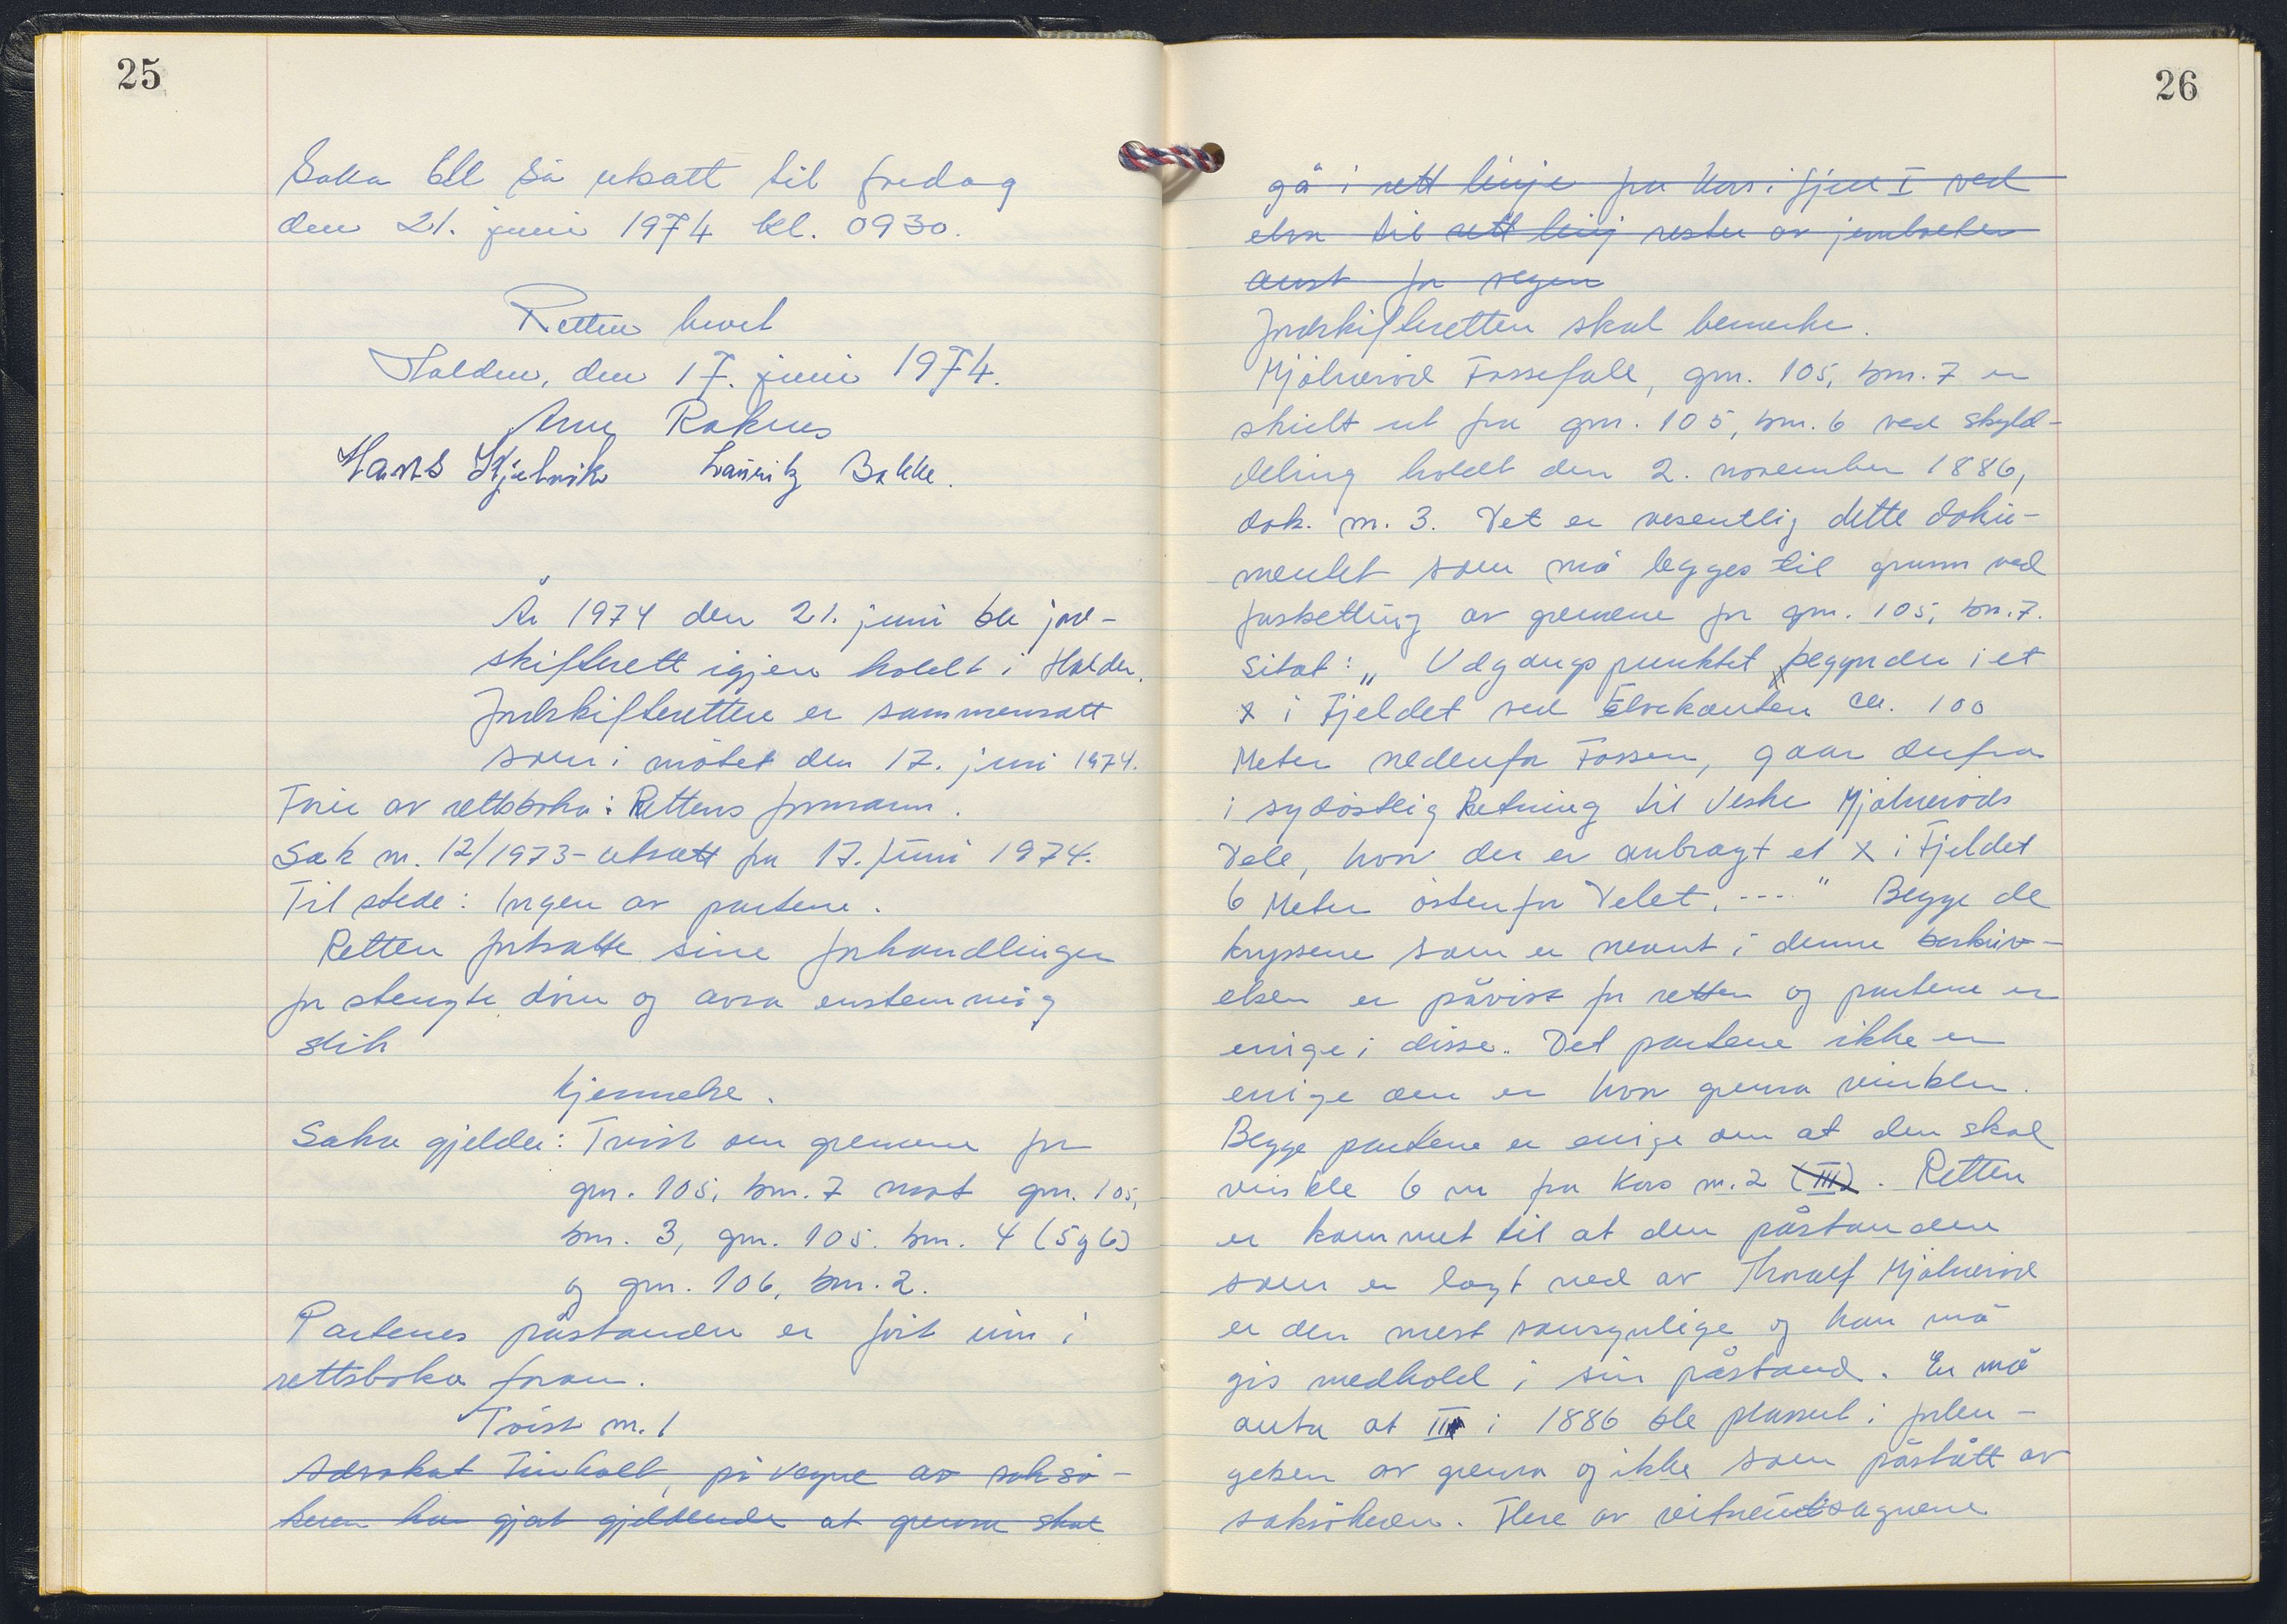 25
Saka ble så utsatt til fredag
den 21. juni 1974 kl. 0930.
Retten hevet
Halden, den 17. juni 1974.
Arne Raknes
Hans Kjølvik Lauritz Bakke.
År 1974 den 21. juni ble jord-
skifterett igjen holdt i Halden.
Jordskifteretten er sammensatt
som i møtet den 17. juni 1974.
Fører av rettsboka: Rettens formann.
Sak nr. 12/1973 - utsatt fra 17. juni 1974.
Til stede: Ingen av partene.
Retten fortsatte sine forhandlinger
for stengte dører og avsa enstemmig
slik
kjennelse.
Saka gjelder: Tvist om grensene for
gnr. 105, bnr. 7 mot gnr. 105,
bnr. 3, gnr. 105. bnr. 4 (5 og 6)
og gnr. 106, bnr. 2.
Partenes påstander er ført inn i
rettsboka foran.
Tvist nr. 1
Advokat på vegne av saksø-
keren har gjort gjeldende at grensa skal
26
gå i rett linje fra kors i fjell I ved
elva til rett linj rester av jernbolten
aust for vegen
Jordskifteretten skal bemerke.
Mjølnerød Fossefall, gnr. 105, bnr. 7 er
skilt ut fra gnr. 105, bnr. 6 ved skyld-
deling holdt den 2. november 1886,
dok. nr. 3. Det er vesentlig dette doku-
mentet som må legges til grunn ved
fastsetting av grensene for gnr. 105, bnr. 7.
Sitat: „Udgangspunktet begynder i et
x i Fjeldet ved Elvekanten ca. 100
Meter nedenfor Fossen, gaar derfra
i sydøstlig Retning til Vestre Mjølnerøds
Dele, hvor der er anbragt et x i Fjeldet
6 Meter østenfor Delet. ----" Begge de
kryssene som er nevnt i denne beskriv-
elsen er påvist for retten og partene er
enige i disse. Det partene ikke er
enige om er hvor grensa vinkler.
Begge partene er enige om at den skal
vinkle 6 m fra kors nr. 2 (III). Retten
er kommet til at den påstanden
som er lagt ned av Thoralf Mjølnerød
er den mest sansynlige og han må
gis medhold i sin påstand. En må
anta at III i 1886 ble plassert i forlen-
gelsen av grensa og ikke som påstått av
saksøkeren. Flere av vitneutsagnene